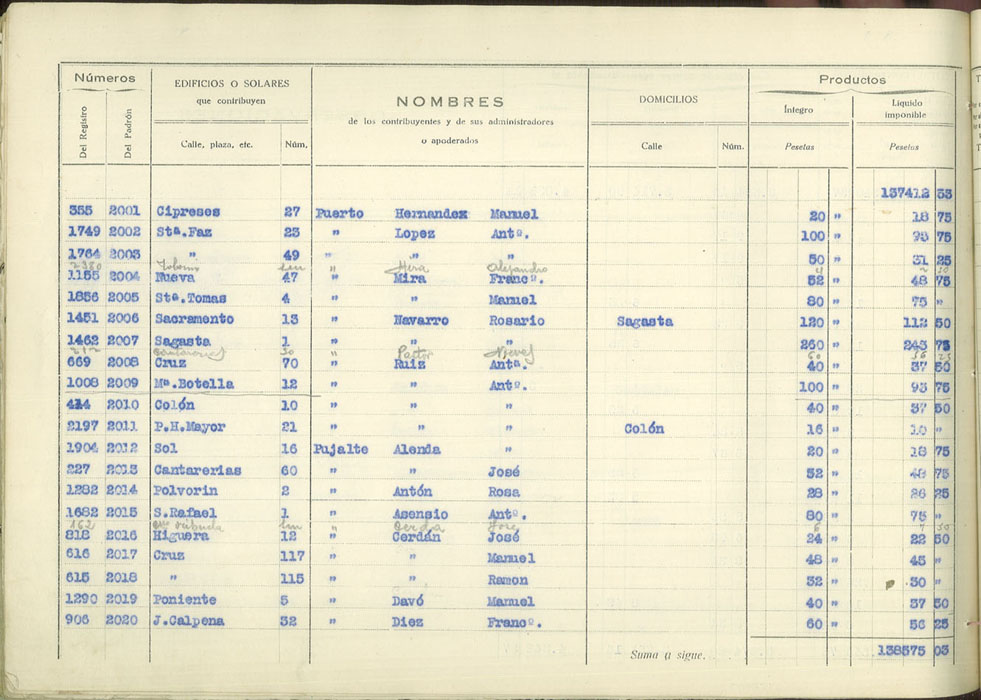 Números EDIFICIOS O SOLARES que contribuyen NOMBRES de los contribuyentes y de sus administradores o apoderados DOMICILIOS Productos
Del Registro Del Padrón Calle, plaza, etc. Núm. Calle Núm. Íntegro Pesetas Líquido imponible Pesetas
137412 53
355 2001 Cipreses 27 Puerto Hernandez Manuel 20 " 18 75
1749 2002 Stª.Faz 23 " Lopez Antº. 100 " 93 75
1764 2003 " 49 " " " 50 " 31 25
2380 " Mira Alejandro 4
1155 2004 Nueva 47 " Mira Francº. 52 " 48 75
1856 2005 Stª.Tomas 4 " " Manuel 80 " 75 "
1451 2006 Sacramento 13 " Navarro Rosario Sagasta 120 " 112 50
1462 2007 Sagasta 1 " " " 260 " 243 75
212 Cantarerias 30 " Pastor Nieves 60 56 25
669 2008 Cruz 70 " Ruiz Antª. 40 " 37 50
1008 2009 Mª.Botella 12 " " Antº. 100 " 93 75
414 2010 Colón 10 " " " 40 " 37 50
2197 2011 P.H.Mayor 21 " " " Colón 16 " 10 "
1904 2012 Sol 16 Pujalte Alenda " 20 " 18 75
227 2013 Cantarerias 60 " " José 52 " 48 75
1282 2014 Polvorin 2 " Antón Rosa 28 " 26 25
1682 2015 S.Rafael 1 " Asensio Antº. 80 " 75 "
162 " Cerdá José
818 2016 Higuera 12 " Cerdán José 24 " 22 50
616 2017 Cruz 117 " " Manuel 48 " 45 "
615 2018 " 115 " " Ramon 32 " 30 "
1290 2019 Poniente 5 " Davó Manuel 40 " 37 50
906 2020 J.Calpena 32 " Diez Francº. 60 " 56 25
Suma u sigue. 138575 03